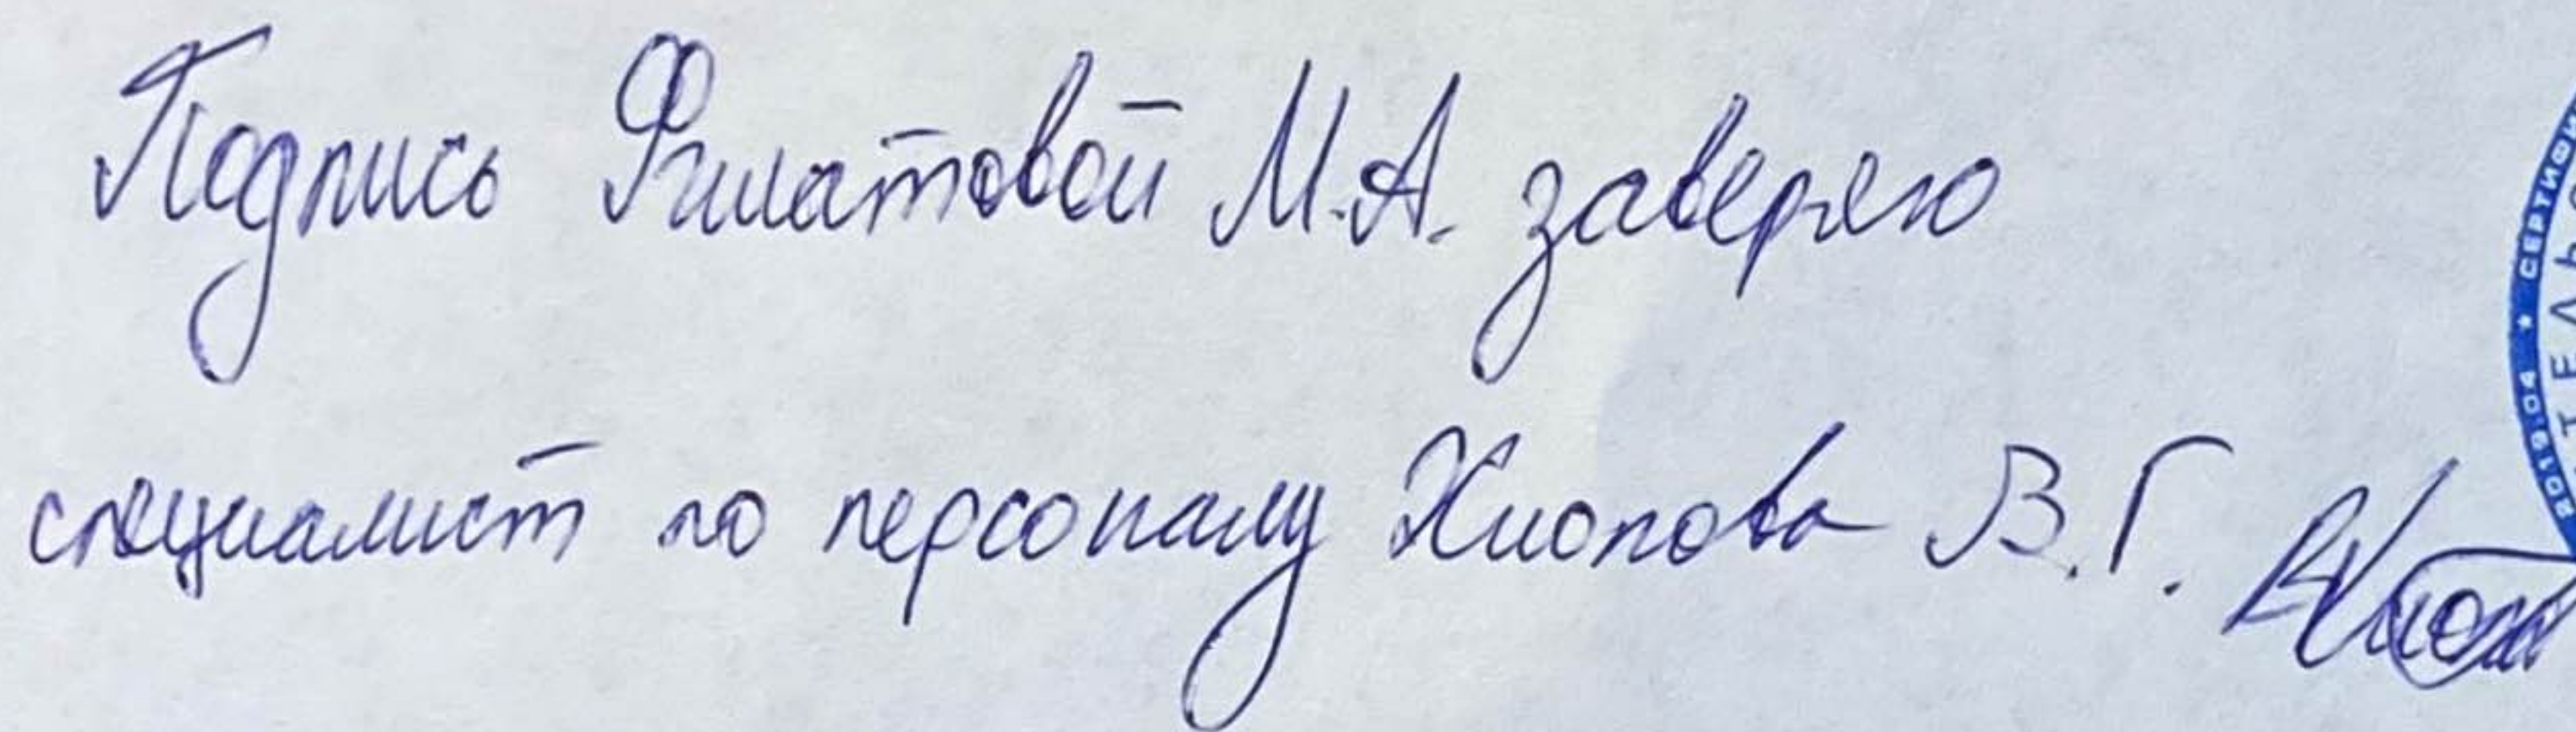 Подпись Филатовой М.А. заверяю
специалист по персоналу Хлопова В.Г.